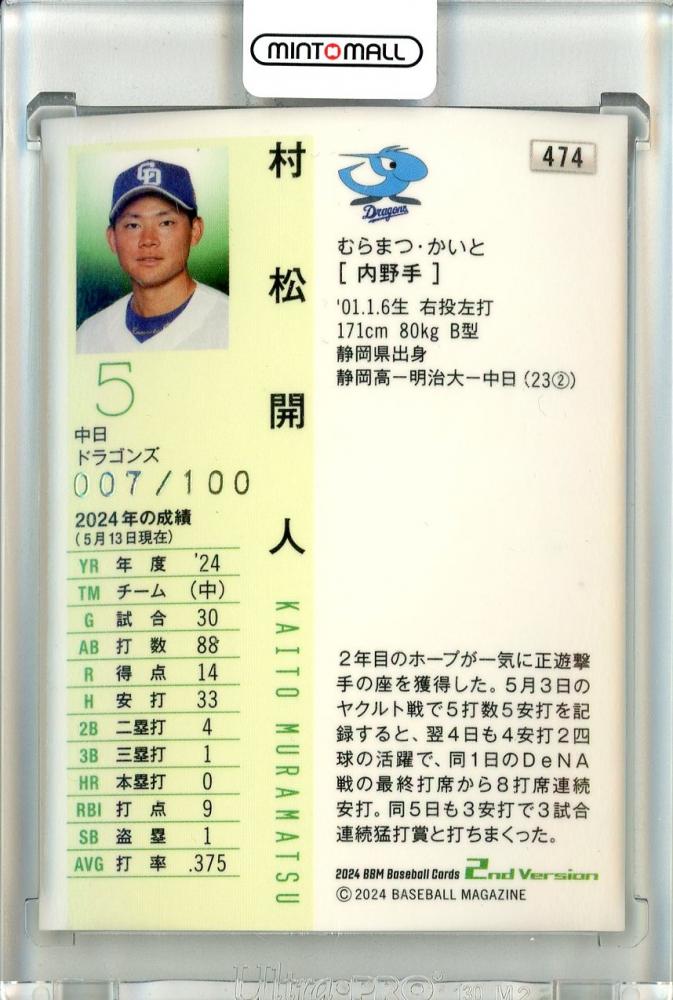 MINTOMALL
474
CD
Dragons
村松開人
むらまつ・かいと
[ 内野手 ]
'01.1.6生 右投左打
171cm 80kg B型
静岡県出身
静岡高ー明治大ー中日（23②）
5
中日
ドラゴンズ
007/100
2024年の成績
（5月13日現在）
YR 年度 '24
TM チーム （中）
G 試合 30
AB 打数 88
R 得点 14
H 安打 33
2B 二塁打 4
3B 三塁打 1
HR 本塁打 0
RBI 打点 9
SB 盗塁 1
AVG 打率 .375
KAITO MURAMATSU
2年目のホープが一気に正遊撃
手の座を獲得した。5月3日の
ヤクルト戦で5打数5安打を記
録すると、翌4日も4安打2四
球の活躍で、同1日のDeNA
戦の最終打席から8打席連続
安打。同5日も3安打で3試合
連続猛打賞と打ちまくった。
2024 BBM Baseball Cards 2nd Version
©2024 BASEBALL MAGAZINE
Ultra·PRO